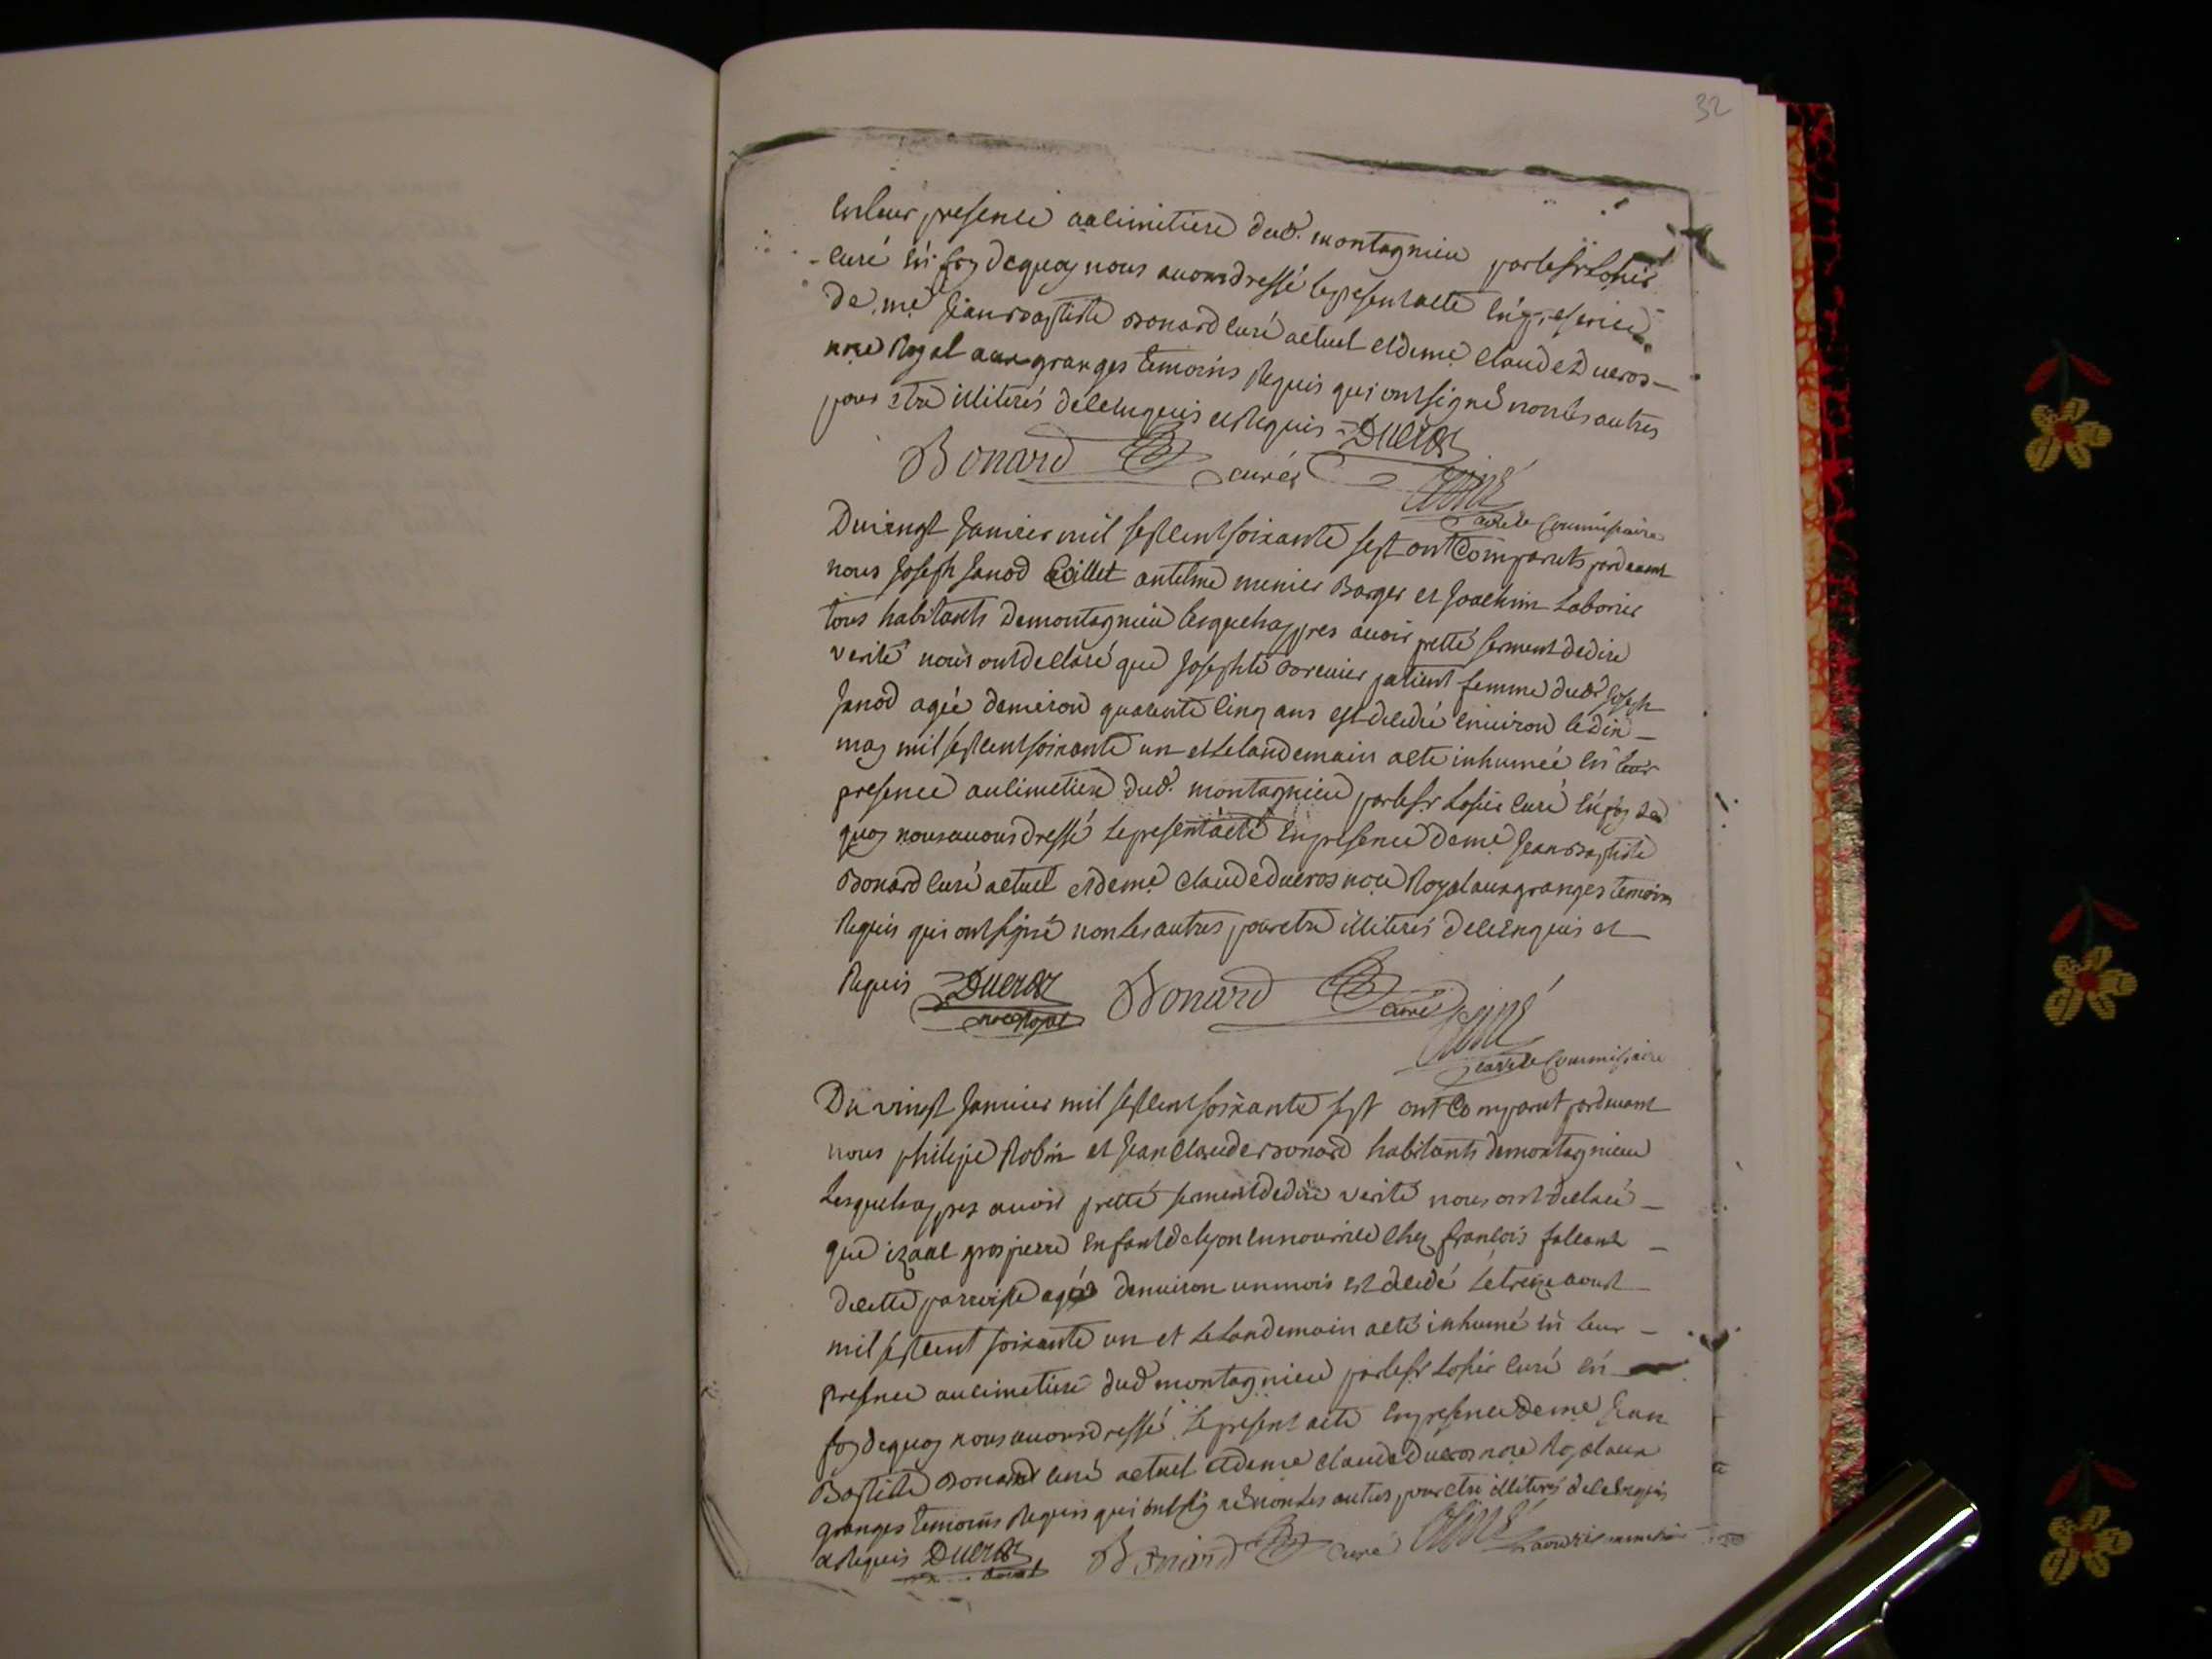 32
en leur presence au cimitiere dud. montagnieu par le Sr
curé en foy de quoy nous avons dressé le present acte en presence
de me Jean baptiste bonard curé actuel et de me claude Ducros
nore Royal aux granges temoins Requis qui ont signé non les autres
pour etre illiterés de ce enquis et Requis Ducros
Bonard curé
commissaire
Du vingt Janvier mil sept cent soixante sept ont comparuts pardevant
nous Joseph Janod anthelme menier Barger et Joachim Laborier
tous habitants de montagnieu lesquels appres avoir pretté serment de dire
verité nous ont declaré que Josephte patient femme dud Joseph
Janod agée denviron quarente cinq ans est decedée environ le dix
may mil sept cent soixante un et le landemain a eté inhumée en leur
presence au cimetiere dud. montagnieu par le Sr curé en foy de
quoy nous avons dressé le present acte en presence de me Jean Baptiste
Bonard curé actuel et de me claude ducros nore Royal aux granges temoins
Requis qui ont signé non les autres pour etre illiterés de ce enquis et
Requis Ducros Bonard curé
nore Royal
commissaire
Du vingt Janvier mil sept cent soixante sept ont comparut pardevant
nous philipe Robin et Jean Claude bonard habitants de montagnieu
Lesquels appres avoir pretté serment de dire verité nous ont declaré
que izaac grospierre enfant de lyon en nourrice chez francois
de cette parroisse agé denviron un mois est decedé le treize aoust
mil sept cent soixante un et le landemain a eté inhumé en leur
presence au cimetiere dud montagnieu par le Sr curé en
foy de quoy nous avons dressé le present acte en presence de me Jean
Baptiste Bonard curé actuel et de me claude Ducros nore Royal aux
granges temoins Requis qui ont signé non les autres pour etre illiterés de ce enquis
et Requis Ducros Bonard curé